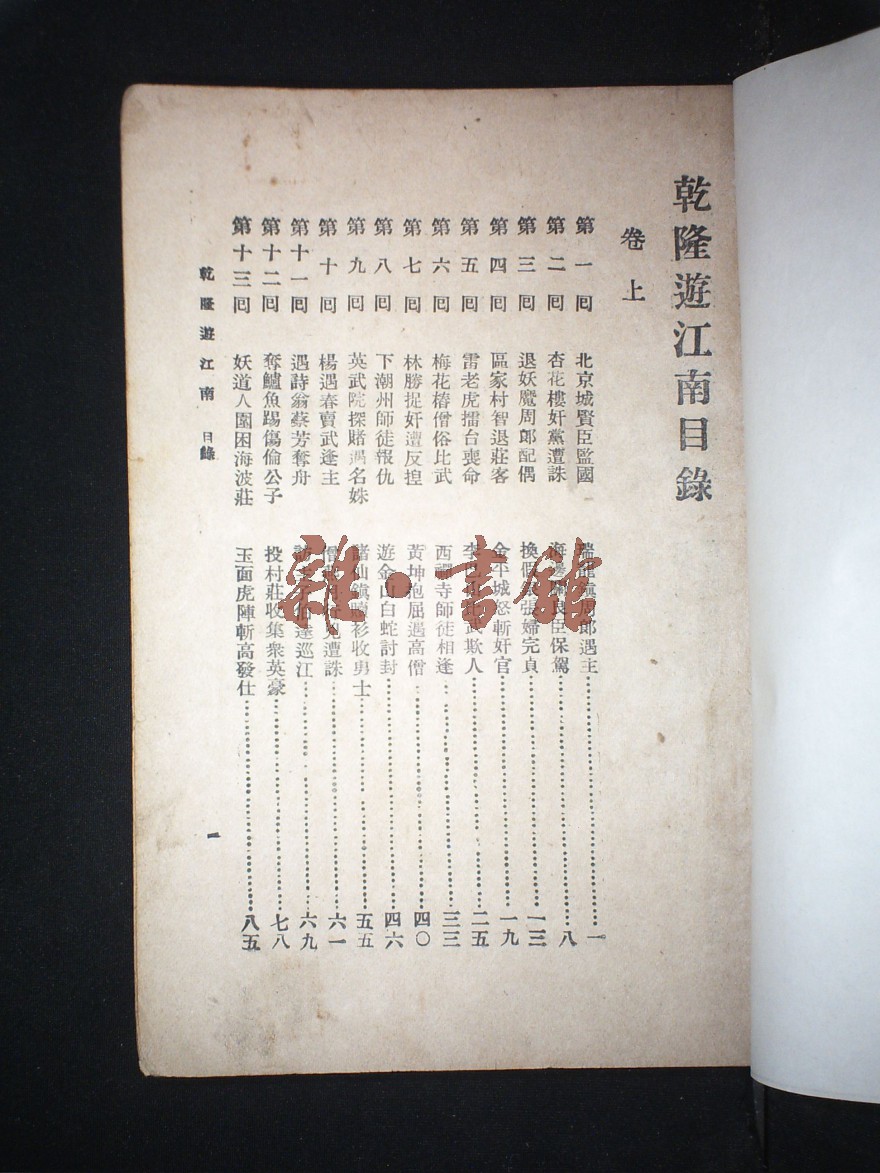 乾隆遊江南目錄
卷上
第一回 北京城賢臣監國 瑞龍鎭周郎遇主 一
第二回 杏花樓奸黨遭誅 海 良臣保駕 八
第三回 退妖魔周郎配偶 換假張婦完貞 一三
第四回 區家村智退莊客 金平城怒斬奸官 一九
第五回 雷老虎擂台喪命 李 武欺人 二五
第六回 梅花樁僧俗比武 西禪寺師徒相逢 三三
第七回 林勝捉奸遭反捏 黃坤抱屈遇高僧 四〇
第八回 下潮州師徒報仇 遊金山白蛇討封 四六
第九回 英武院探賭遇名姝 諸仙鎭贖衫收勇士 五五
第十回 楊遇春賣武逢主 僧 兇遭誅 六一
第十一回 遇詩翁蔡芳奪舟 訪 仙達巡江 六九
第十二回 奪鱸魚踢傷倫公子 投村莊收集衆英豪 七八
第十三回 妖道人圍困海波莊 玉面虎陣斬高發仕 八五
乾隆遊江南 目錄
一
雜·書館